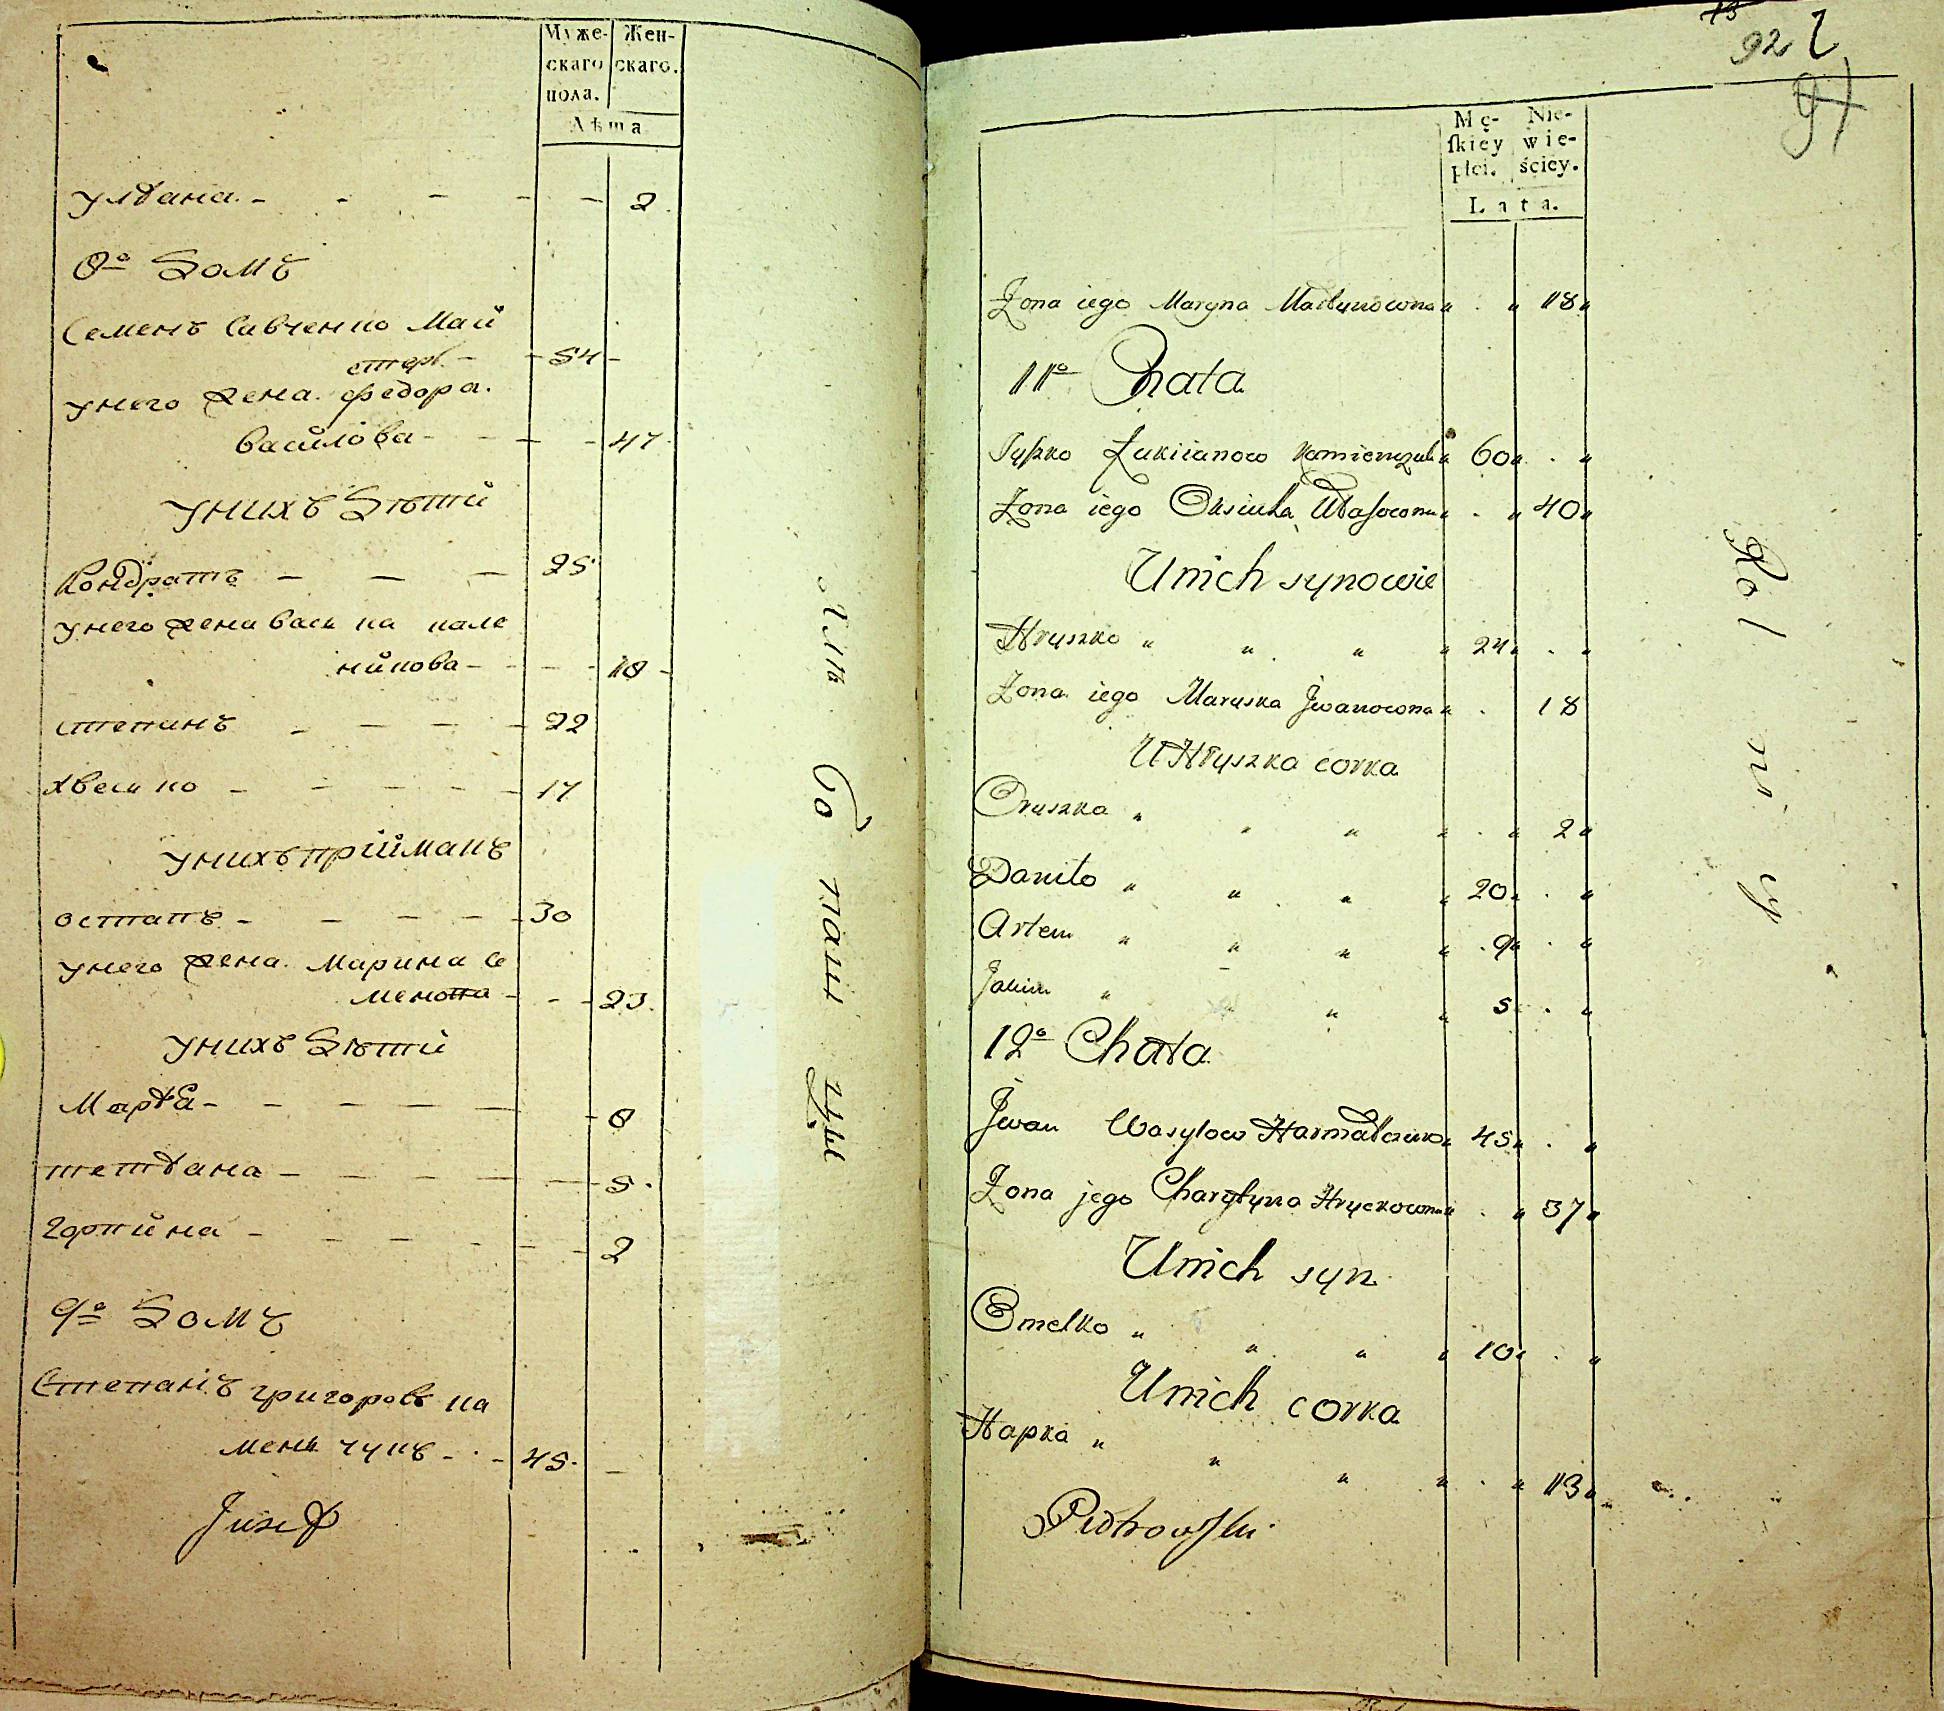 Муже-
скаго
пола.
Жен-
скаго.
Лѣта
улѣана - - - - - 2
8º домъ
Семенъ Савченко Май
стеръ - - 54 -
унего жена федора
василова - - - - 47
унихъ дѣти
Кондратъ - - - 25
унего жена васька кале
никова - - - - 18 -
степанъ - - - - 22
хвесько - - - - - 17
унихъ пріймакъ
остапъ - - - - - 30
унего жена Марина Се
менова - - - 23
унихъ дѣти
Марѳа - - - - - - 8
тетѣана - - - - - - 5
горпина - - - - - - 2
9º домъ
Степанъ григоровъ ка
менчукъ - - - 45 -
Jusef
работ цы
13
92
97
Mę-
ſkiey
płci.
Nie-
wie-
ściey.
Lata.
Żona iego Maryna Martynowna „ . „ 18 „
11º Chata
Łukiianow Kamienczuk „ 60 „ . „
Żona iego Oksiuta Własowna „ . „ 40 „
Unich synowie
Hryszko „ „ „ „ 24 „ . „
Żona iego Maruska Jwanowna „ . 18
U Hryszka corka
Oryszka „ „ „ „ . „ 2 „
Daniło „ „ „ „ 20 „ . „
Artem „ „ „ „ . 9 „ . „
Jakim „ „ „ „ 5 . „
12º Chata
Jwan Wasylow Harmatiuk „ 45 „ . „
Żona jego Charytyna Hryckowna „ . „ 37 „
Unich syn
Emelko „ „ „ „ 10 „ . „
Unich corka
Hapka „ „ „ „ . „ 13 „
Piotrowſki
Rol ni cy